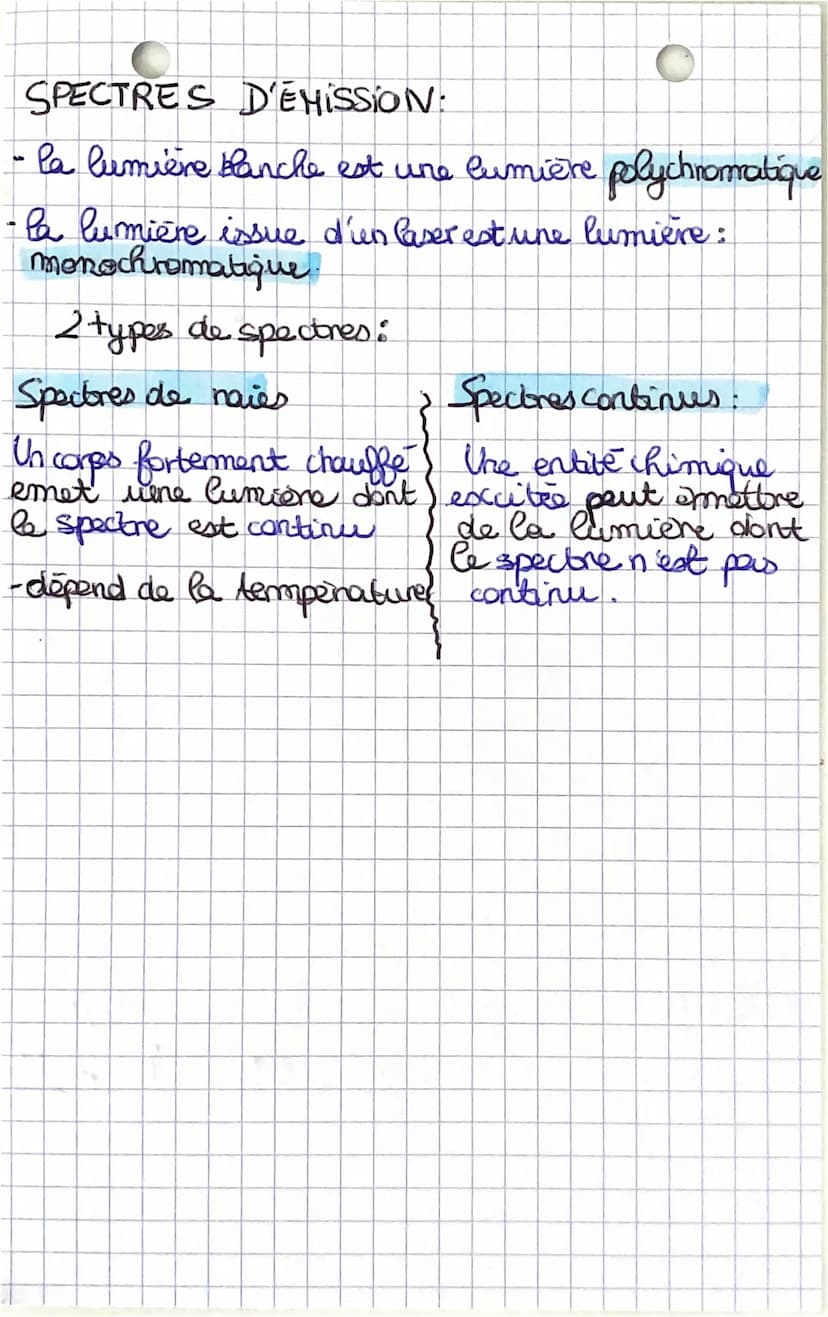 SPECTRES D'ÉMISSION:
- la lumière blanche est une lumière polychromatique
- la lumière issue d'un laser est une lumière :
monochromatique.
2 types de spectres :
Spectres de raies
Un corps fortement chauffé
emet une lumière dont
le spectre est continu
- dépend de la température
Spectres continus :
Une entité chimique
excitée peut émettre
de la lumière dont
le spectre n'est pas
continu.